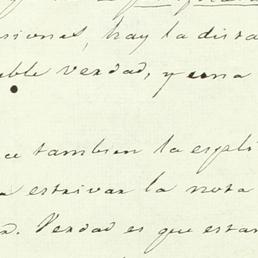 siones, hay la dista
able verdad, y una
ce tambien la espli
a estrivar la nota
Verdad es que estan